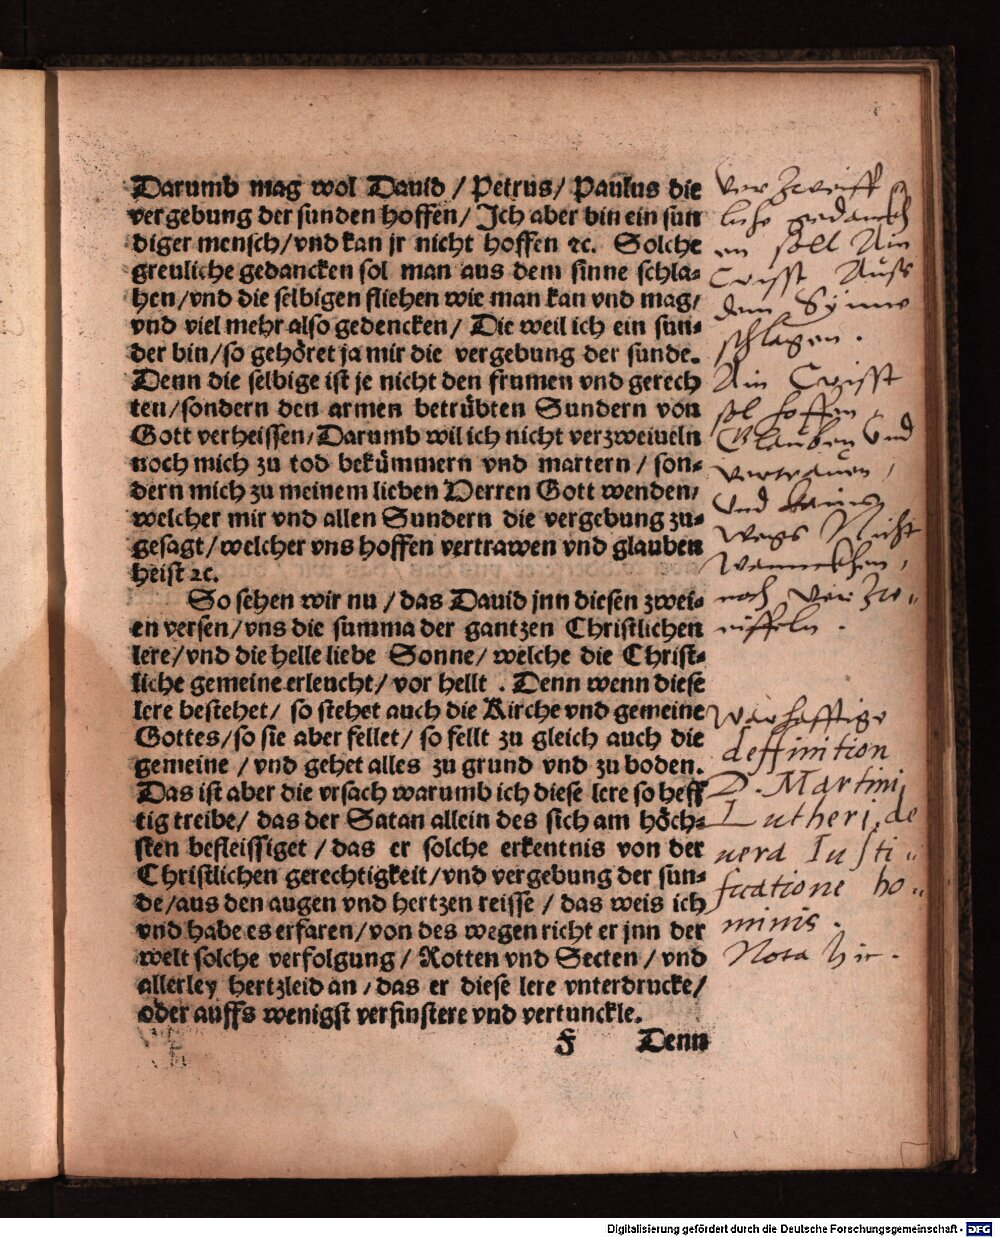 Darumb mag wol Dauid / Petrus / Paulus die
vergebung der sunden hoffen / Ich aber bin ein sun
diger mensch / vnd kan jr nicht hoffen ꝛc. Solche
greuliche gedancken sol man aus dem sinne schla⸗
hen / vnd die selbigen fliehen wie man kan vnd mag /
vnd viel mehr also gedencken / Die weil ich ein sun⸗
der bin / so gehöret ja mir die vergebung der sunde.
Denn die selbige ist je nicht den frumen vnd gerech
ten / sondern den armen betrübten Sundern von
Gott verheissen / Darumb wil ich nicht verzweiueln
noch mich zu tod bekümmern vnd martern / son⸗
dern mich zu meinem lieben Herren Gott wenden /
welcher mir vnd allen Sundern die vergebung zu⸗
gesagt / welcher vns hoffen vertrawen vnd glauben
heist ꝛc.
So sehen wir nu / das Dauid jnn diesen zwei⸗
en versen / vns die summa der gantzen Christlichen
lere / vnd die helle liebe Sonne / welche die Christ⸗
liche gemeine erleucht / vor hellt . Denn wenn diese
lere bestehet / so stehet auch die Kirche vnd gemeine
Gottes / so sie aber fellet / so fellt zu gleich auch die
gemeine / vnd gehet alles zu grund vnd zu boden.
Das ist aber die vrsach warumb ich diese lere so heff
tig treibe / das der Satan allein des sich am höch⸗
sten befleissiget / das er solche erkentnis von der
Christlichen gerechtigkeit / vnd vergebung der sun⸗
de / aus den augen vnd hertzen reisse / das weis ich
vnd habe es erfaren / von des wegen richt er jnn der
welt solche verfolgung / Rotten vnd Secten / vnd
allerley hertzleid an / das er diese lere vnterdrucke /
oder auffs wenigst verfinstere vnd vertunckle.
F Denn
Ver Zweiff
liche gedanckh
en soll Ain
Crisst Auss
dem Synne
schlagen .
Ain Crisst
sol hoffen ,
Glauben Vnd
vertrauen ,
Vnd kains
wegs Nicht
noch ver Zw⸗
eiffeln .
Warhafftige
deffinition
D. Martini
Lutheri, de
uera Iusti⸗
ficatione ho⸗
minis .
Nota hie .
Digitalisierung gefördert durch die Deutsche Forschungsgemeinschaft - DFG